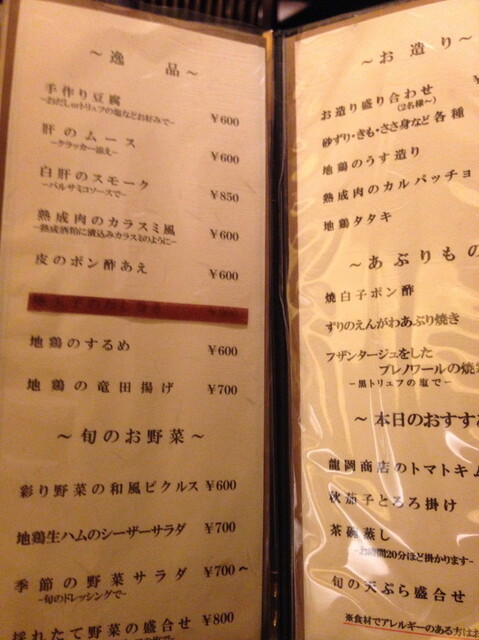 ～逸品～
手作り豆腐 ￥600
～おだしorトリュフの塩などお好みで～
肝のムース ￥600
－クラッカー添え－
白肝のスモーク ￥850
－バルサミコソースで－
熟成肉のカラスミ風 ￥600
－熟成酒粕に漬込みカラスミのように－
皮のポン酢あえ ￥600
地鶏のするめ ￥600
地鶏の竜田揚げ ￥700
～旬のお野菜～
彩り野菜の和風ピクルス ￥600
地鶏生ハムのシーザーサラダ ￥700
季節の野菜サラダ ￥700～
－旬のドレッシングで－
採れたて野菜の盛合せ ￥800
～お造り～
お造り盛り合わせ
(2名様～)
砂ずり・きも・ささ身など各種
地鶏のうす造り
熟成肉のカルパッチョ
地鶏タタキ
～あぶりもの
焼白子ポン酢
ずりのえんがわあぶり焼き
フザンタージュをした
ブレノワールの焼
－黒トリュフの塩で－
～本日のおすすめ
龍岡商店のトマトキム
秋茄子とろろ掛け
茶碗蒸し
－お時間20分ほど掛かります－
旬の天ぷら盛合せ
※食材でアレルギーのある方はお